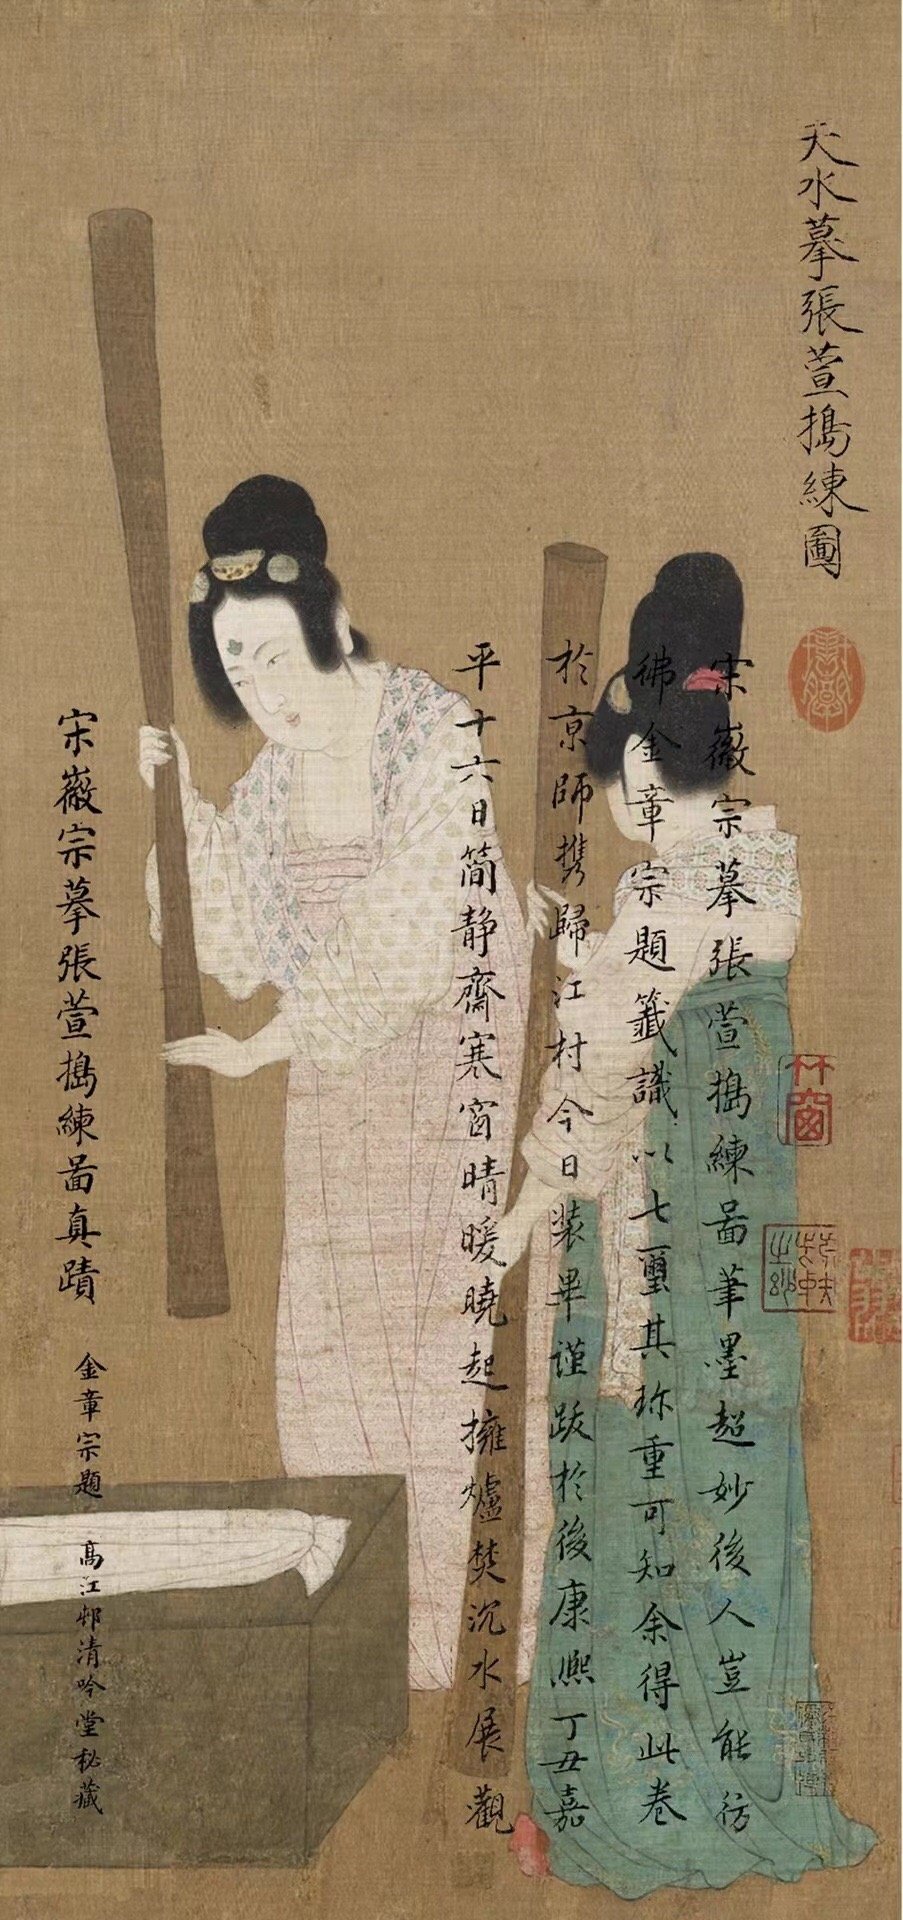 天水摹張萱搗練圖
宋徽宗摹張萱搗練啚筆墨超妙後人豈能彷
彿金章宗題籤識以七璽其珎重可知余得此卷
於京師携歸江村今日装畢謹跋於後康熙丁丑嘉
平十六日簡静齋寒窗晴暖曉起擁爐焚沉水展觀
宋徽宗摹張萱搗練啚真蹟
金章宗題 高江邨清吟堂秘藏
竹窗